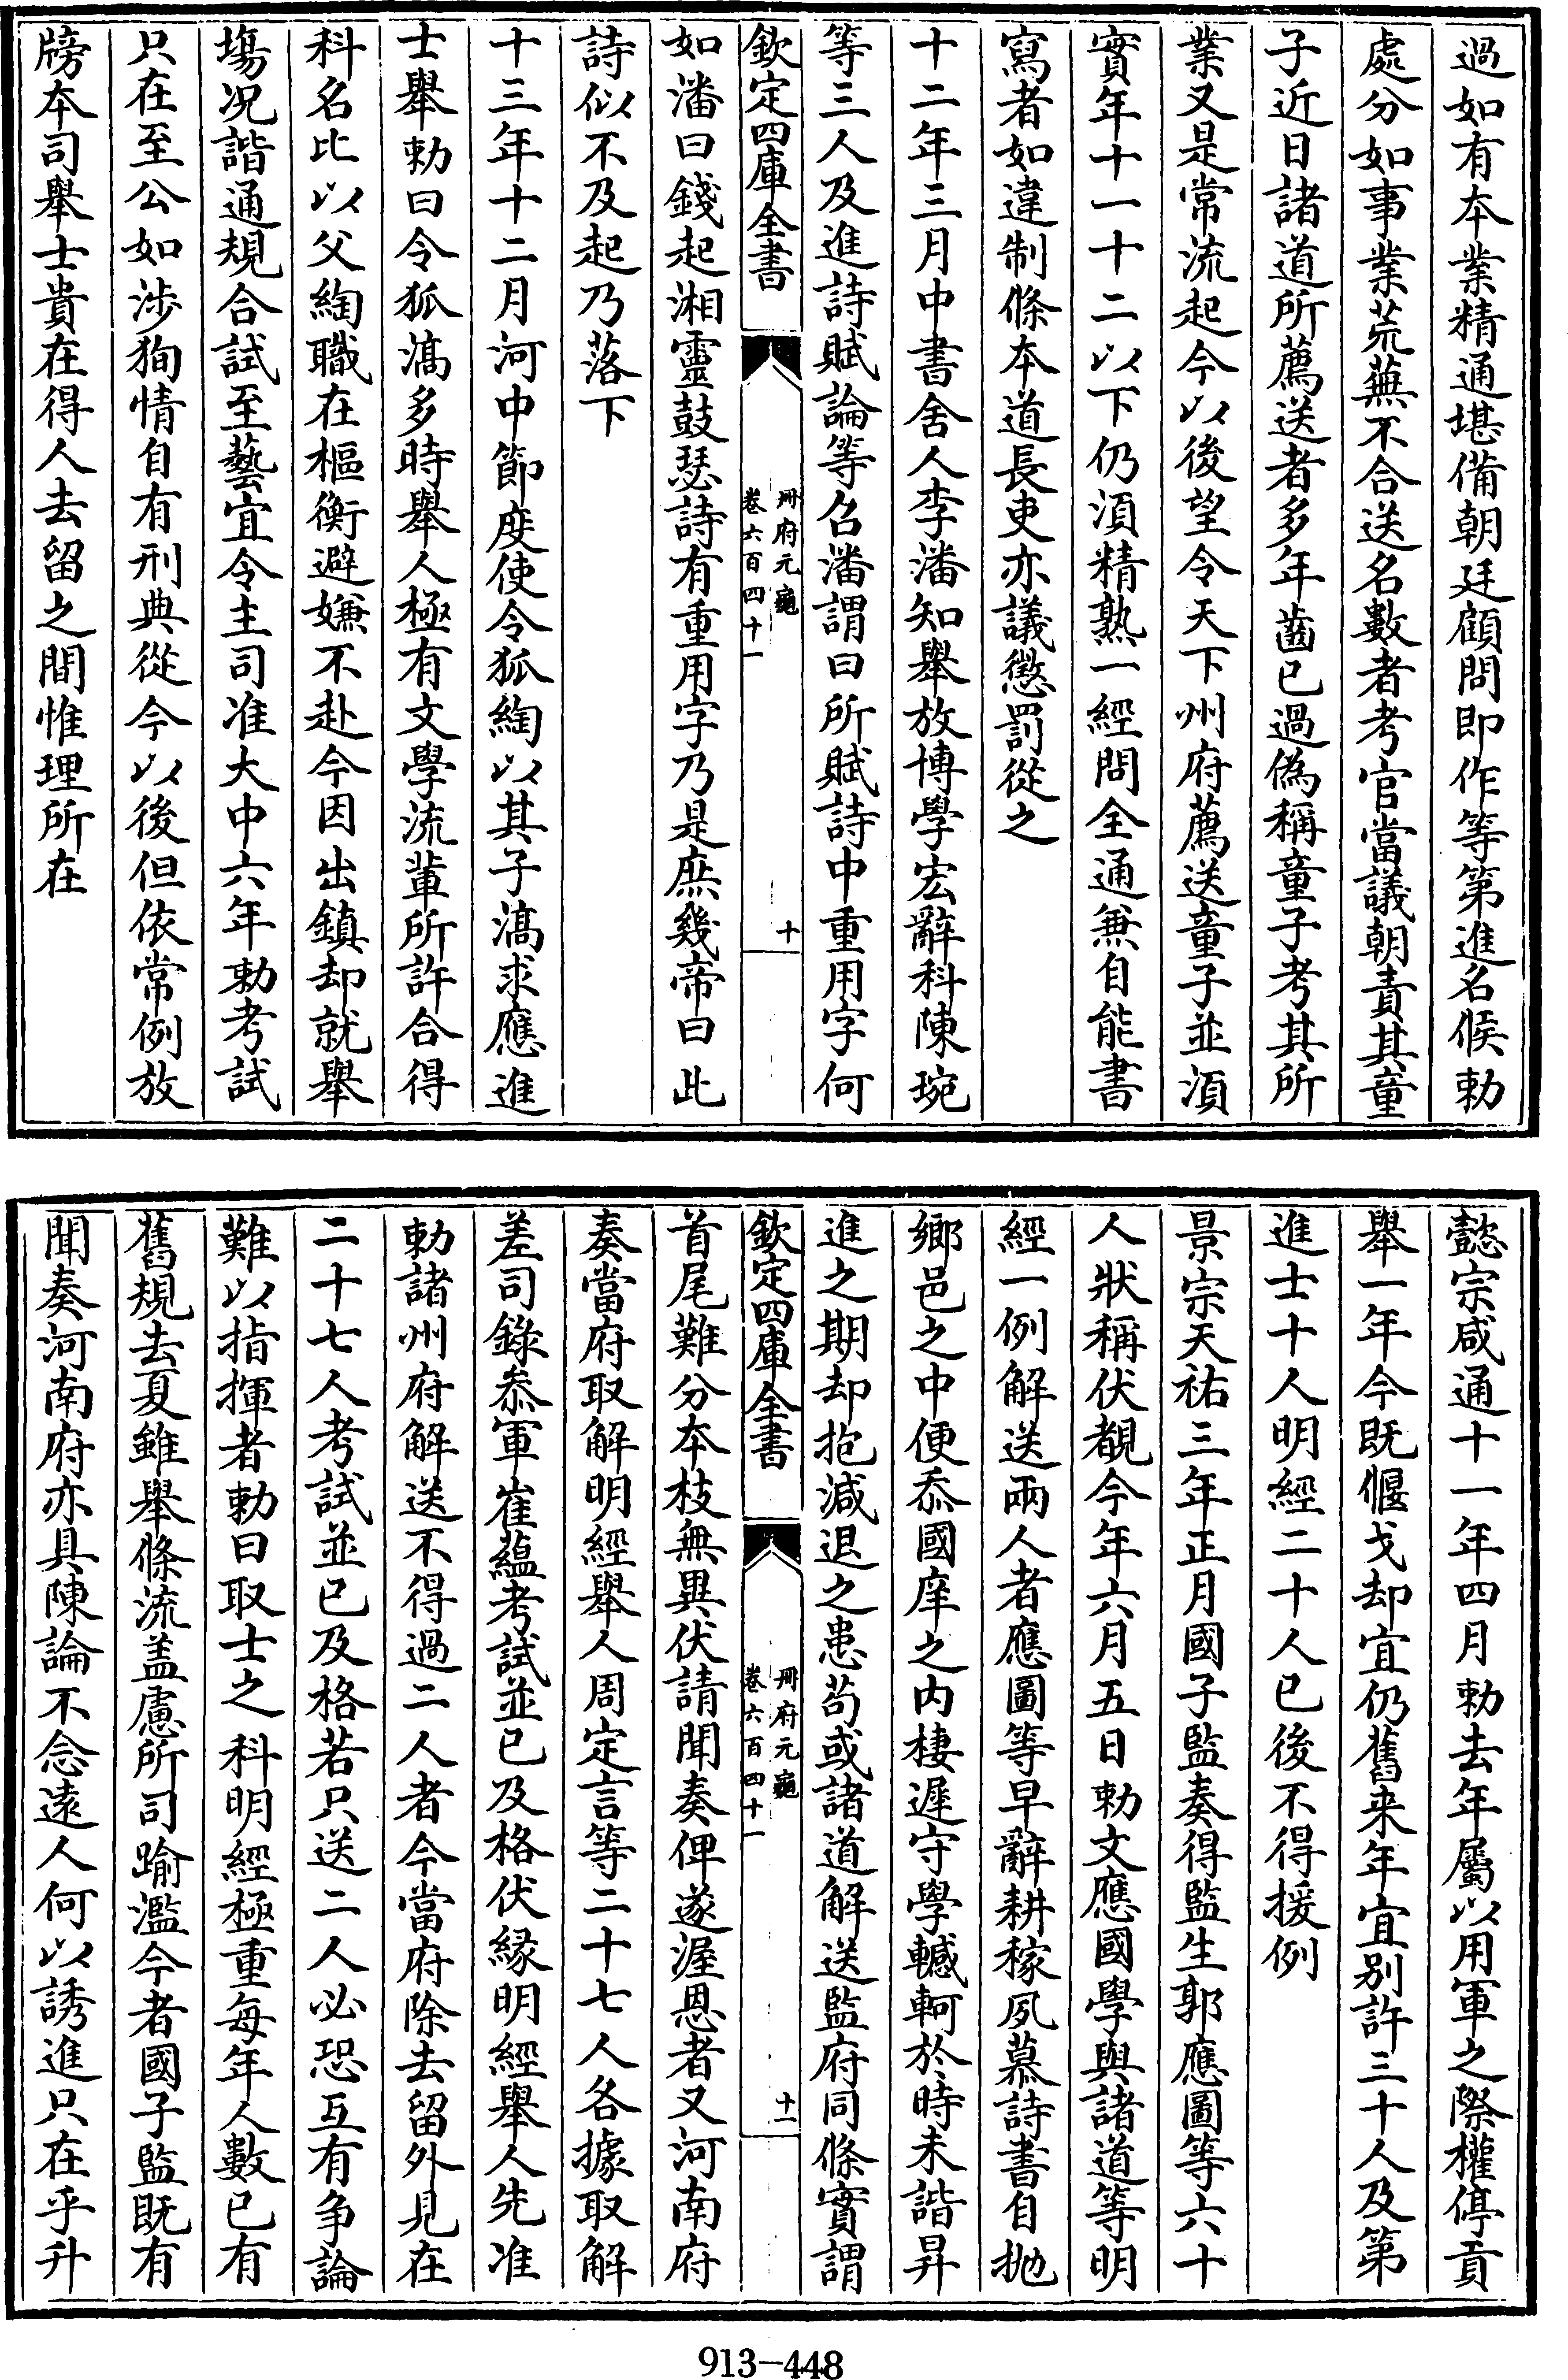 過如有本業精通堪備朝廷顧問即作等第進名候勅
處分如事業荒蕪不合送名數者考官當議朝責其童
子近日諸道所薦送者多年齒已過偽稱童子考其所
業又是常流起今以後望令天下州府薦送童子並須
實年十一十二以下仍須精熟一經問全通兼自能書
寫者如違制條本道長吏亦議懲罰從之
十二年三月中書舍人李潘知舉放博學宏辭科陳琬
等三人及進詩賦論等召潘謂曰所賦詩中重用字何
欽定四庫全書
冊府元龜
卷六百四十一
十
如潘曰錢起湘靈鼓瑟詩有重用字乃是庶幾帝曰此
詩似不及起乃落下
十三年十二月河中節度使令狐綯以其子滈求應進
士舉勅曰令狐滈多時舉人極有文學流輩所許合得
科名比以父綯職在樞衡避嫌不赴今因出鎮却就舉
塲况諧通規合試至藝宜令主司准大中六年勅考試
只在至公如涉狥情自有刑典從今以後但依常例放
牓本司舉士貴在得人去留之間惟理所在
懿宗咸通十一年四月勅去年屬以用軍之際權停貢
舉一年今既偃戈却宜仍舊来年宜別許三十人及第
進士十人明經二十人已後不得援例
景宗天祐三年正月國子監奏得監生郭應圖等六十
人狀稱伏覩今年六月五日勅文應國學與諸道等明
經一例解送兩人者應圖等早辭耕稼夙慕詩書自抛
鄉邑之中便忝國庠之内棲遲守學轗軻於時未諧昇
進之期却抱減退之患茍或諸道解送監府同條實謂
欽定四庫全書
冊府元龜
卷六百四十一
十一
首尾難分本枝無異伏請聞奏俾遂渥恩者又河南府
奏當府取解明經舉人周定言等二十七人各據取解
差司錄叅軍崔蘊考試並已及格伏縁明經舉人先准
勅諸州府解送不得過二人者今當府除去留外見在
二十七人考試並已及格若只送二人必恐互有爭論
難以指揮者勅曰取士之科明經極重每年人數已有
舊規去夏雖舉條流盖慮所司踰濫今者國子監既有
聞奏河南府亦具陳論不念遠人何以誘進只在乎升
913—448